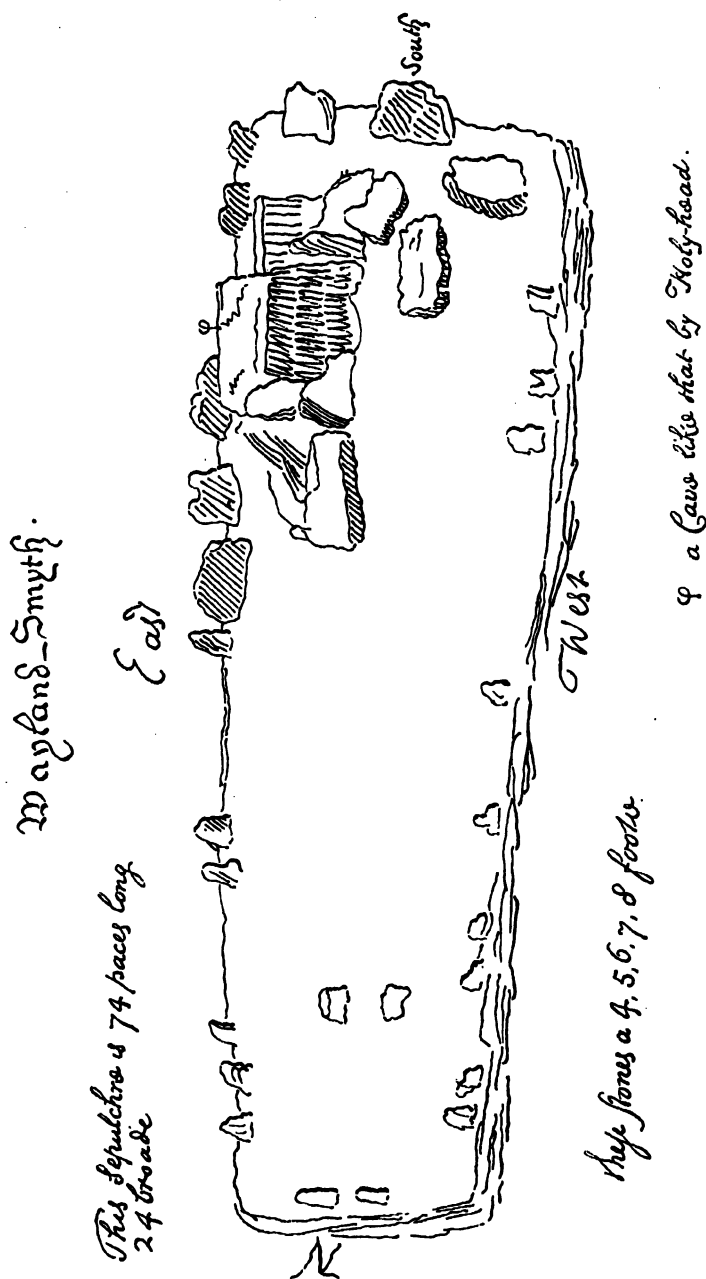 Wayland-Smyth.
East
This Sepulchre is 74 paces long
24 broade
South
West
These stones a 4, 5, 6, 7, 8 foote.
φ a Cave like that by Holy-head.
φ
N